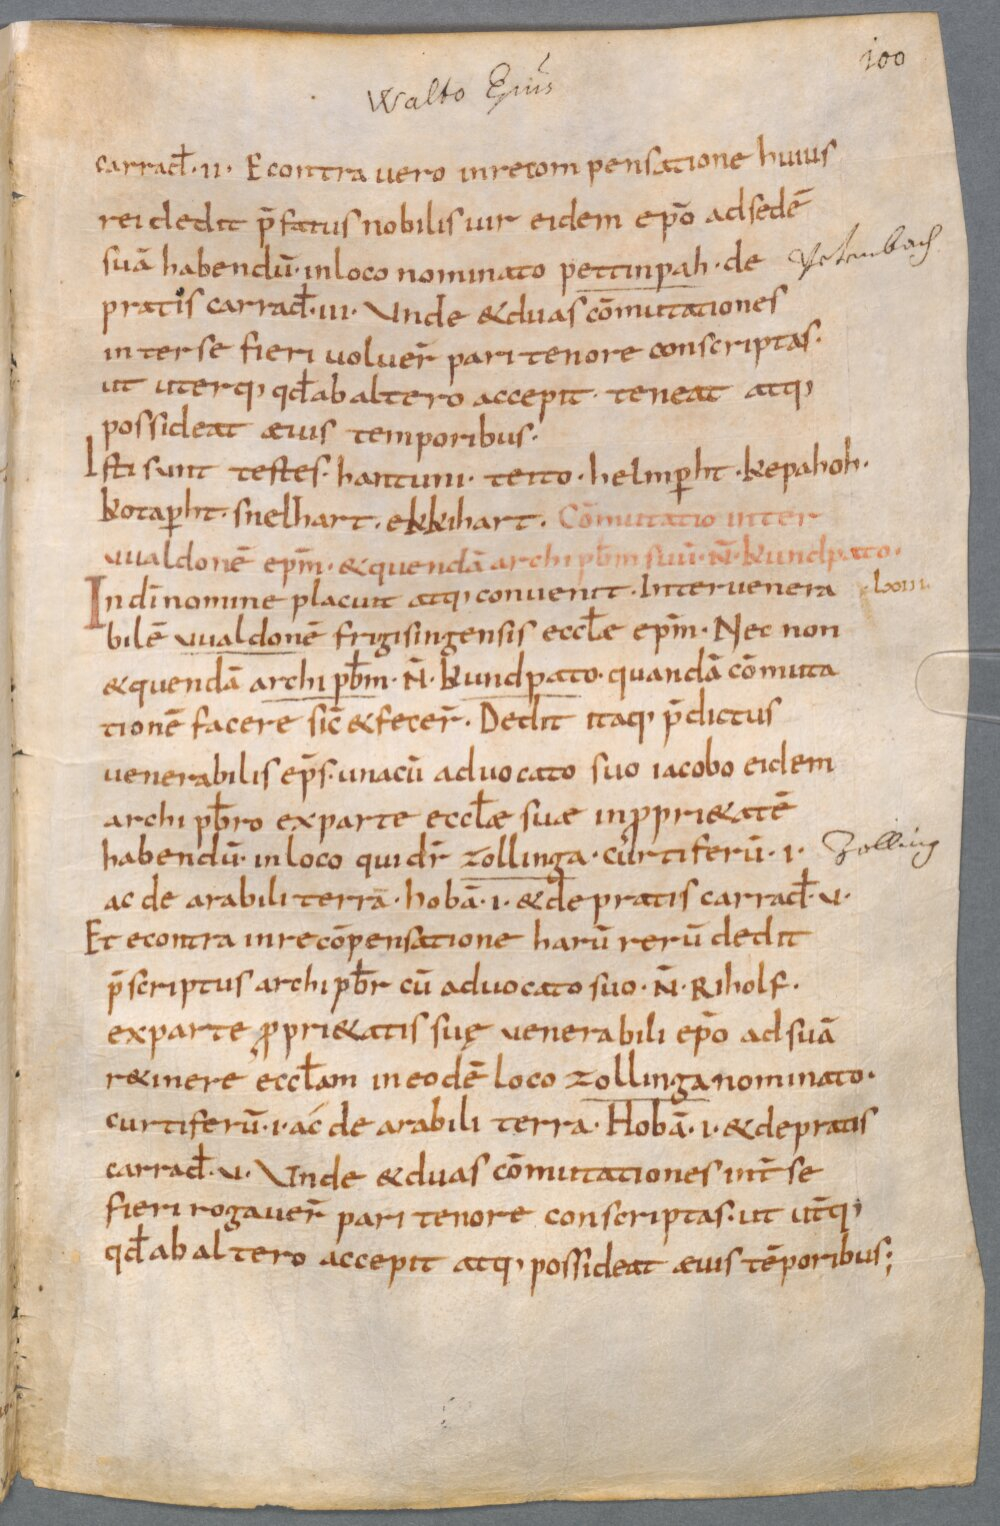 100
Walto Epūs
carrad̄·ii· E contra uero inrecompensatione huius
rei dedit p̄fatus nobilis uir eidem ep̄o adsedē
suā habendū· inloco nominato pettinpah· de
Petenbach
pratis carrad̄·iii· Vnde &duas cōmutationes
inter se fieri uoluer̄ pari tenore conscriptas·
ut uterq; qd̄ ab altero accepit· teneat atq;
possideat æuis temporibus·
Isti sunt testes· hantuni· tetto· helmp̄ht· kepahoh·
kotap̄ht· snelhart· ekkihart· Cōmutatio inter
uualdonē ep̄m· &quendā archi pb̄m suū·N̄·kundpato·
lxiii
In dī nomine placuit atq; conuenit· Inter uenera
bilē uualdonē frigisingensis eccłe ep̄m· Nec non
&quendā archi pb̄m·N̄·kundpato· quandā cōmuta
tionē facere sic̄ &fecer̄· Dedit itaq; p̄dictus
uenerabilis ep̄s· unacū aduocato suo iacobo eidem
archi pb̄ro exparte eccłæ suæ inꝓpri&atē
habendū· inloco qui dr̄ zollinga· curtiferū·i·
Zolling
ac de arabili terra· hobā·i· &de pratis carrad̄·v·
Et econtra inrecōpensatione harū rerū dedit
p̄scriptus archi pb̄r cū aduocato suo·N̄·Riholf·
exparte ꝓpri&atis suę uenerabili ep̄o ad suā
r&inere eccłam in eodē loco zollinga nominato·
curtiferū·i· ac de arabili terra· Hobā·i· &depratis
carrad̄·v· Vnde &duas cōmutationes int̄ se
fieri rogauer̄ pari tenore conscriptas· ut ut̄q;
qd̄ ab altero accepit atq; possideat æuis tēporibus;